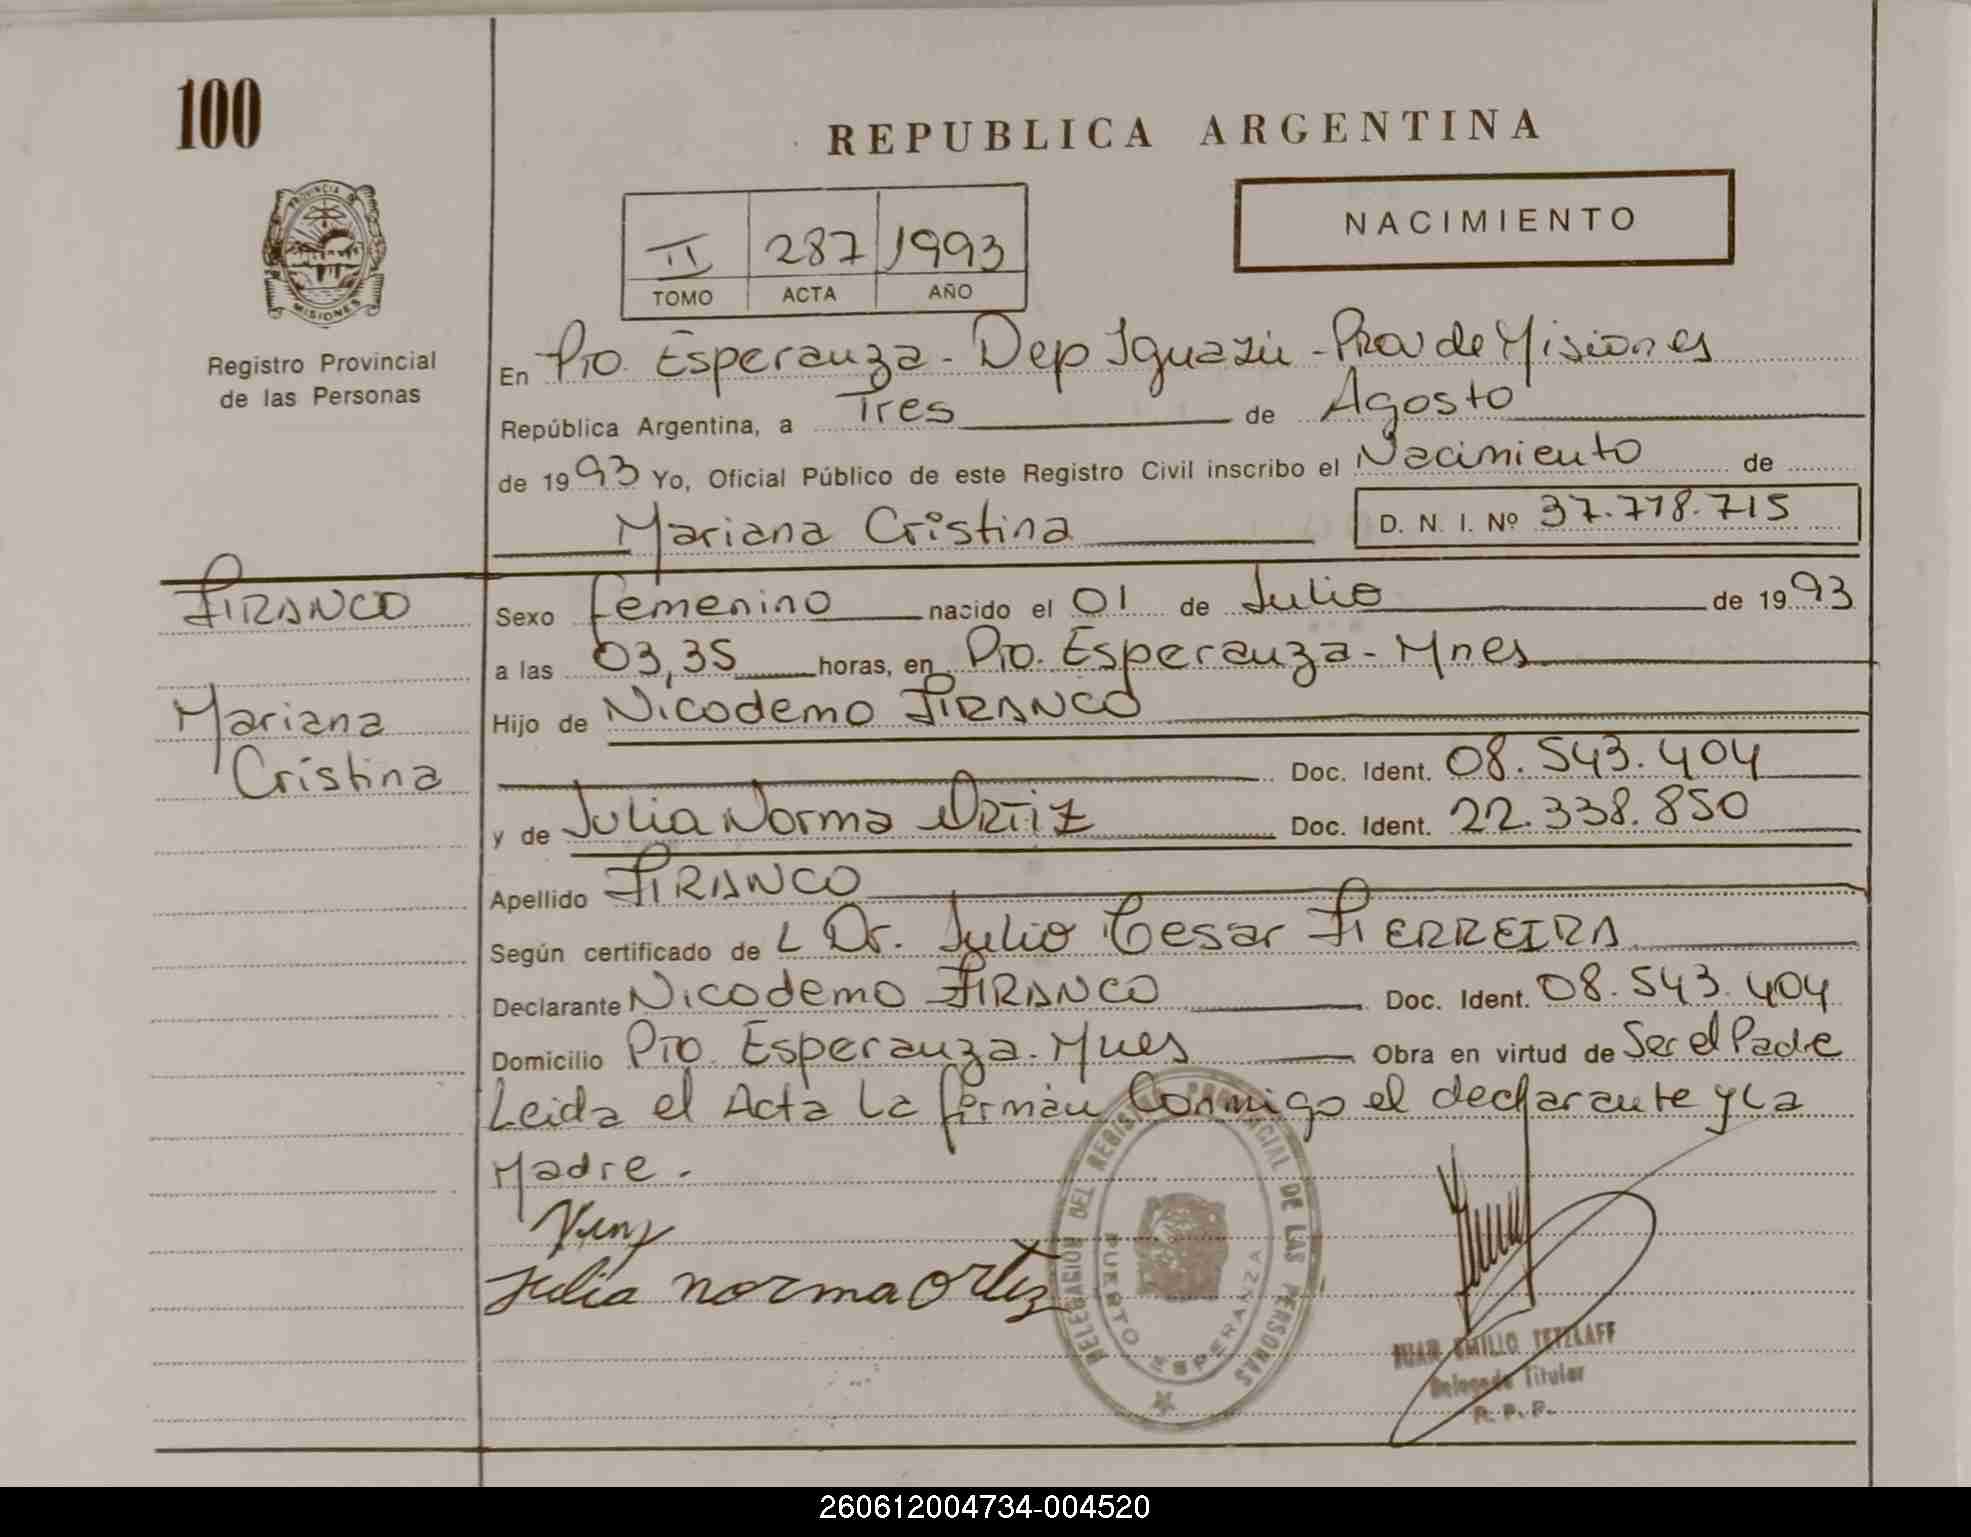 100
REPUBLICA ARGENTINA
PROVINCIA DE
MISIONES
Registro Provincial
de las Personas
NACIMIENTO
II 287 1993
TOMO ACTA AÑO
En Pto. Esperanza - Dep Iguazú - Prov de Misiones
República Argentina, a Tres de Agosto
de 1993 Yo, Oficial Público de este Registro Civil inscribo el Nacimiento de
Mariana Cristina D. N. I. Nº 37.778.715
FRANCO
Mariana
Cristina
Sexo femenino nacido el 01 de Julio de 1993
a las 03,35 horas, en Pto. Esperanza - Mnes
Hijo de Nicodemo FRANCO
Doc. Ident. 08.543.404
y de Julia Norma ORTIZ Doc. Ident. 22.338.850
Apellido FRANCO
Según certificado de L Dr. Julio Cesar FERREIRA
Declarante Nicodemo FRANCO Doc. Ident. 08.543.404
Domicilio Pto. Esperanza - Mnes Obra en virtud de Ser el Padre
Leida el Acta La firman Conmigo el declarante y La
Madre.
Julia norma Ortiz
DELEGACION DEL REGISTRO PROVINCIAL DE LAS PERSONAS
PUERTO ESPERANZA
JUAN EMILIO TETZLAFF
Delegado Titular
R. P. P.
260612004734-004520